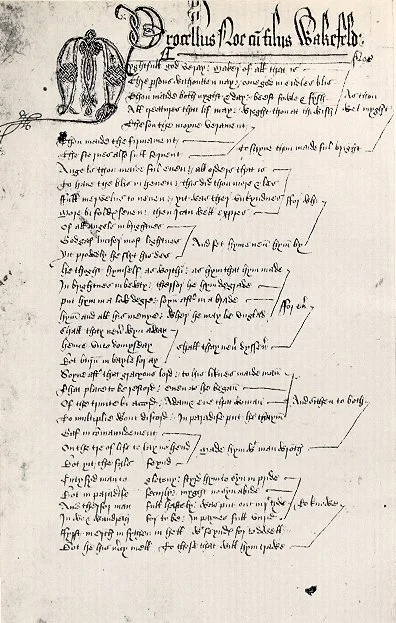 Processus Noe cū filiis Wakefeld:
Noe
Myghtfull god veray : maker of all that is
Thre p̄sons withoutten nay : one god in endles blis
Thou maide both nyght & day : beest fowle & fysh
All creatures that lif may : wroght thou at thi wish
As thou
wel myght
The son the moyne verament
Thou maide the firmament
The sternes also full feruent
To shyne thou maide ful bright
Angels thou maide full euen : all orders that is
To haue the blis in heuen : this did thou more & les
full mervelus to neuen : yit was ther vnkyndnes
More bi foldys seuen : then I can well expres
ffor whi
Of all angels in brightnes
God gaf lucifer most lightnes
Yit prowdly he flyt his des
And set hym euen hym by
he thoght hymself as worthi : as hym that hym made
In brightnes in bewty : therfor he hym degrade
put hym in a low degre : soyn aftˀ in a brade
hym and all his menye : wher he may be vnglad
ffor eu̾
shall thay neu̾ wyn away
hence vnto domysday
Bot burne in bayle for ay
shall thay neu̾ dysseu̾
Soyne aftˀ that gracyous lord : to his liknes maide man
That place to be restord : euen as he began
Of the trinite bi accord : Adam & eue that woman
To multiplie wᵗout discord : In paradise put he thaym
And sithen to both
Gaf in cōmaundement
On the tre of life to lay no hend
Bot yit the fals feynd
Made hym wᵗ man wroth
Entysyd man to glotony : styrd hym to syn in pride
Bot in paradise securly : myght no syn abide
And therfor man full hastely : was put out in yᵗ tyde
In wo & wandreth for to be : In paynes full vnrid
To knowe
ffyrst in erth & sythen in hell
wᵗ feyndis for to dwell
Bot he his m̄cy mell
To those that will hym trawe